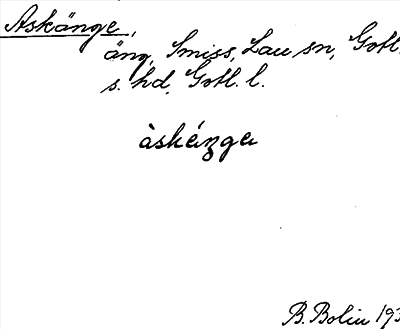 Askänge,
äng, Smiss, Lau sn, Gotl.
s. hd, Gotl. l.
àskéŋge
B. Bolin 193